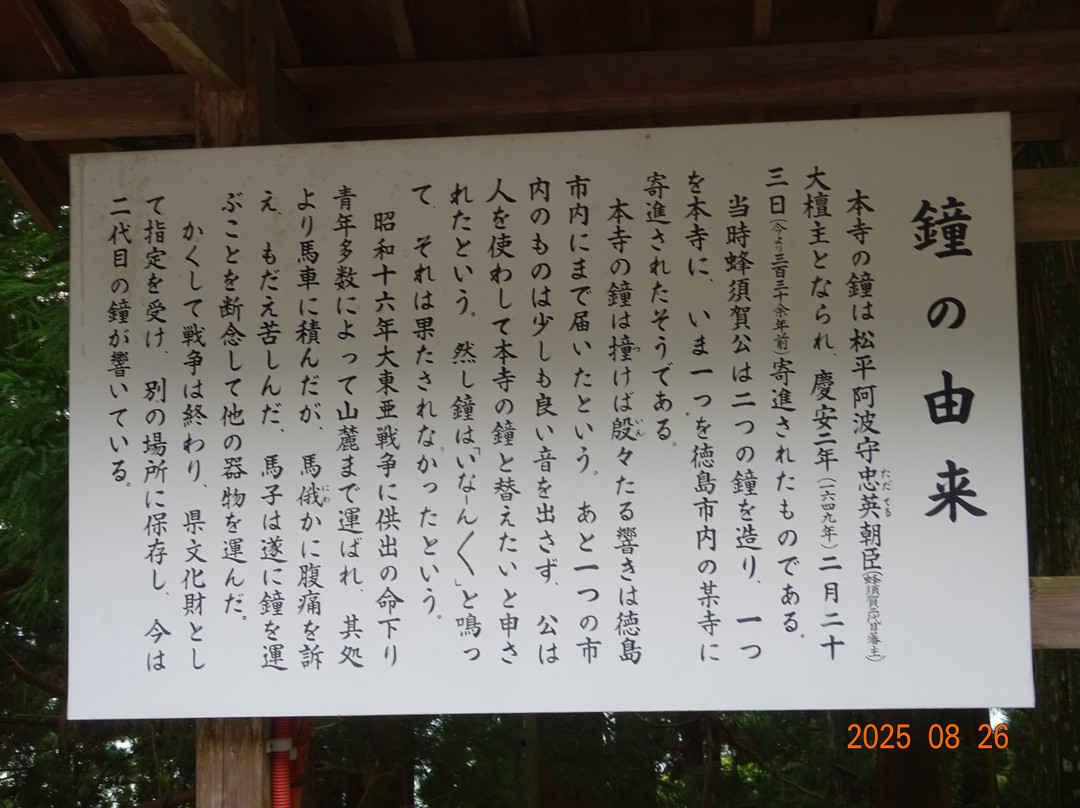 鐘の由来
本寺の鐘は松平阿波守忠英朝臣(蜂須賀二代目藩主)
ただてる
大檀主となられ、慶安二年(一六四九年)二月二十
三日(今より三百三十余年前)寄進されたものである。
当時蜂須賀公は二つの鐘を造り、一つ
を本寺に、いま一つを徳島市内の某寺に
寄進されたそうである。
本寺の鐘は撞けば殷々たる響きは徳島
つ
いん
市内にまで届いたという。あと一つの市
内のものは少しも良い音を出さず、公は
人を使わして本寺の鐘と替えたいと申さ
れたという。然し鐘は「いなーん〱」と鳴っ
て、それは果たされなかったという。
昭和十六年大東亜戦争に供出の命下り
青年多数によって山麓まで運ばれ、其処
より馬車に積んだが、馬俄かに腹痛を訴
にわ
え、もだえ苦しんだ、馬子は遂に鐘を運
ぶことを断念して他の器物を運んだ。
かくして戦争は終わり、県文化財とし
て指定を受け、別の場所に保存し、今は
二代目の鐘が響いている。
2025 08 26